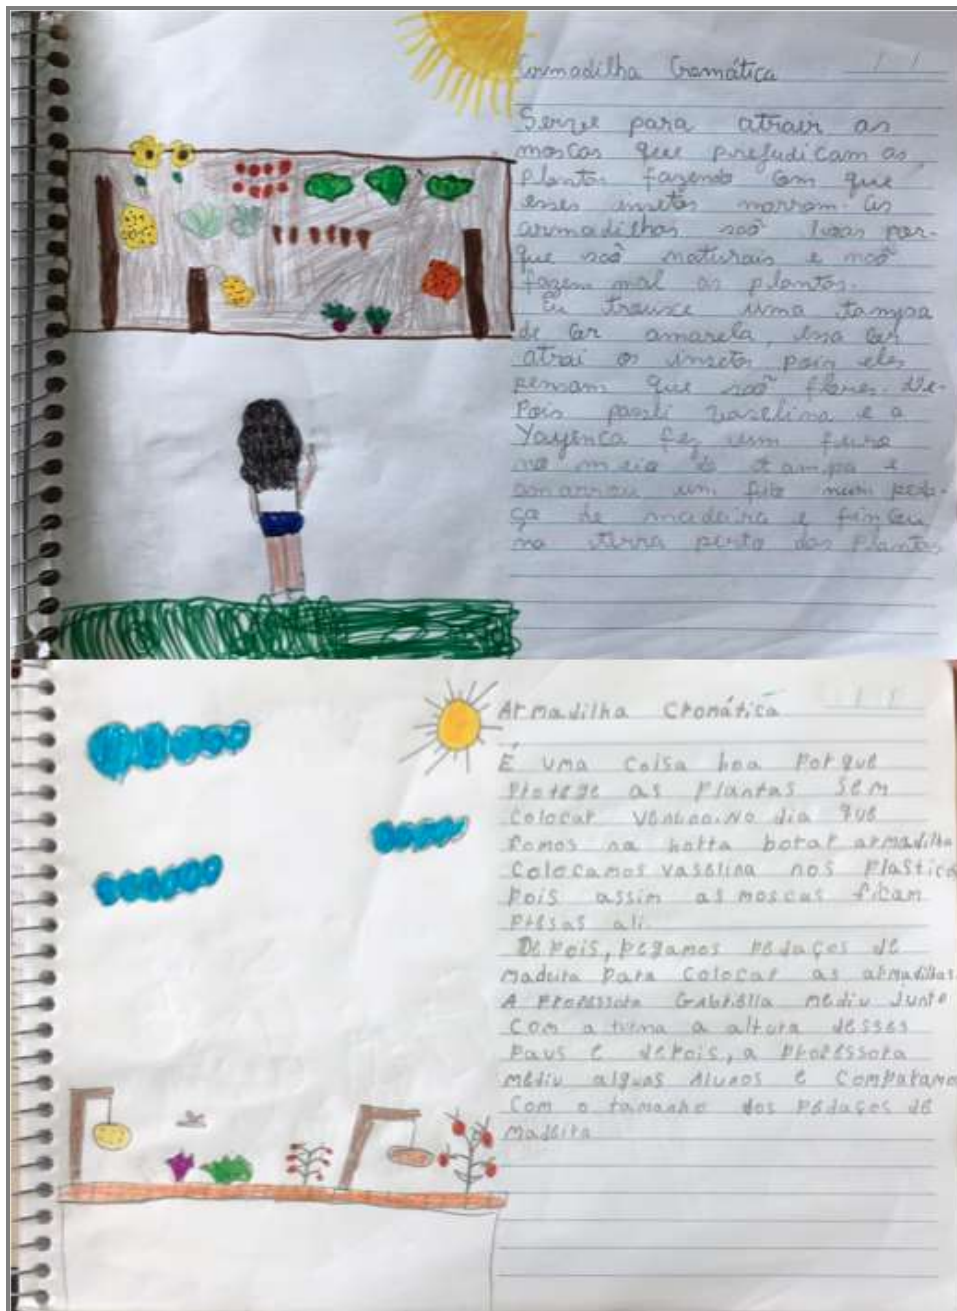 Armadilha Cromática
Serve para atrair as
moscas que prejudicam as
plantas fazendo com que
esses insetos morram. As
armadilhas são boas por-
que são naturais e não
fazem mal as plantas.
Eu trouxe uma tampa
de cor amarela, essa cor
atrai os insetos pois eles
pensam que são flores. De-
pois passei vaselina e a
fez um furo
no meio da tampa e
amarrou um fio num peda-
ço de madeira e fincou
na terra perto das plantas
Armadilha Cromática
É uma coisa boa porque
protege as plantas sem
colocar veneno. No dia que
fomos na horta botar armadilha
colocamos vaselina nos plástico
pois assim as moscas ficam
presas ali.
Depois, pegamos pedaços de
madeira para colocar as armadilhas.
A professora Gabriella mediu junto
com a turma a altura desses
paus e depois, a professora
mediu alguns alunos e comparamo
com o tamanho dos pedaços de
madeira